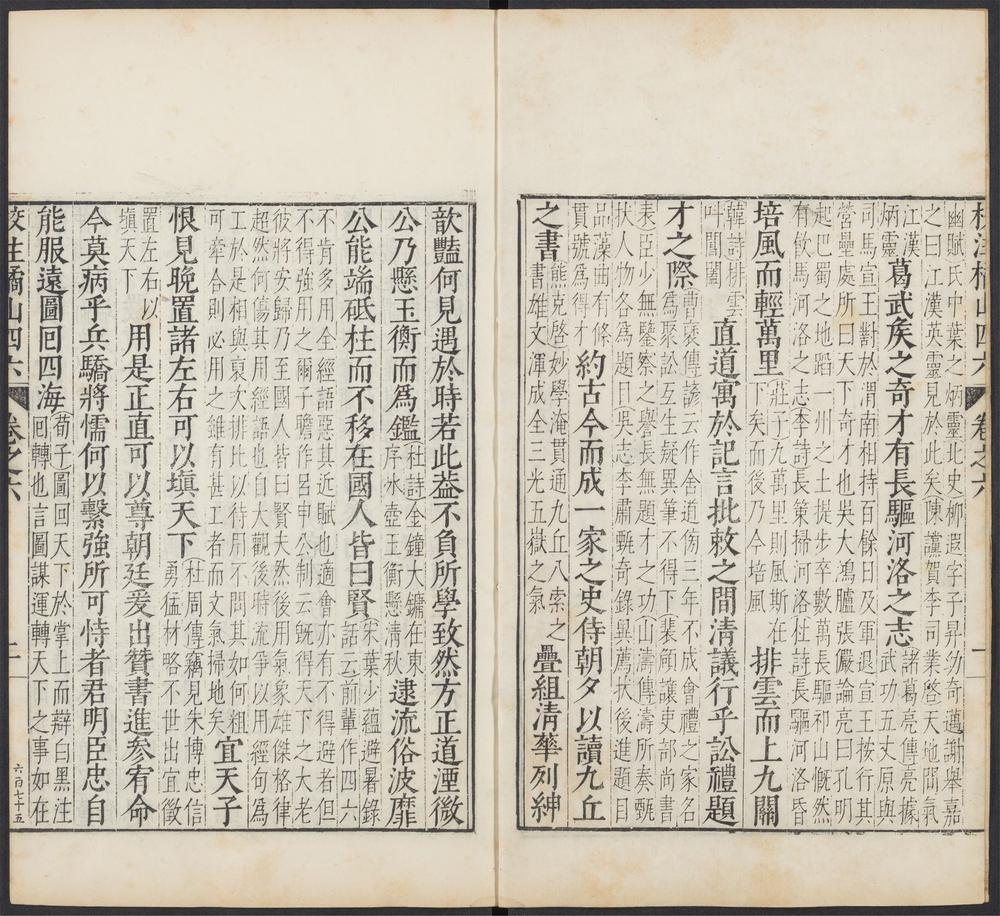 校注橘山四六　卷之六　一
幽賦氏中葉之炳靈北史柳遐字子昇幼奇邁謝舉嘉
之曰江漢英靈見於此矣陳讜賀李司業啓天地間氣
江漢炳靈
葛武矦之奇才有長驅河洛之志
諸葛亮傳亮據武功五丈原與
司馬宣王對於渭南相持百餘日及軍退宣王按行其
營壘處所曰天下奇才也吳大鴻臚張儼論亮曰孔明
起巴蜀之地蹈一州之土提步卒數萬長驅祁山慨然
有飲馬河洛之志李詩長策掃河洛杜詩長驅河洛昏
培風而輕萬里
莊子九萬里則風斯在下矣而後乃今培風
排雲而上九關
韓詩排雲叫閶闔
直道寓於記言批敕之間清議行乎訟禮題
才之際
曹褎傳諺云作舍道傍三年不成會禮之家名
爲聚訟互生疑異筆不得下裴頠讓吏部尚書
表臣少無鑒察之譽長無題才之功山濤傳濤所奏甄
扶人物各爲題目吳志李肅甄奇錄異薦扶後進題目
品藻曲有條貫號爲得才
約古今而成一家之史侍朝夕以讀九丘
之書
熊克啓妙學淹貫通九丘八索之
書雄文渾成全三光五嶽之氣
疊組清華列紳
歆豔何見遇於時若此葢不負所學致然方正道湮微
公乃懸玉衡而爲鑑
杜詩金鐘大鏞在東
序冰壺玉衡懸清秋
逮流俗波靡
公能端砥柱而不移在國人皆曰賢
宋葉少蘊避暑錄
話云前輩作四六
不肯多用全經語惡其近賦也適會亦有不得避者但
不得強用之爾子瞻作呂申公制云旣得天下之大老
彼將安歸乃至國人皆曰賢夫然後用氣象雄傑格律
超然何傷其用經語也自大觀後時流爭以用經句爲
工於是相與裒次排比以待用不問其如何粗
可牽合則必用之雖有甚工者而文氣掃地矣
宜天子
恨見晚置諸左右可以塡天下
杜周傳竊見朱博忠信
勇猛材略不世出宜徵
置左右以塡天下
用是正直可以尊朝廷爰出贊書進參宥命
今莫病乎兵驕將懦何以繫強所可恃者君明臣忠自
能服遠圖回四海
荀子圖回天下於掌上而辯白黑注
回轉也言圖謀運轉天下之事如在
校注橘山四六　卷之六　二
六百七十五